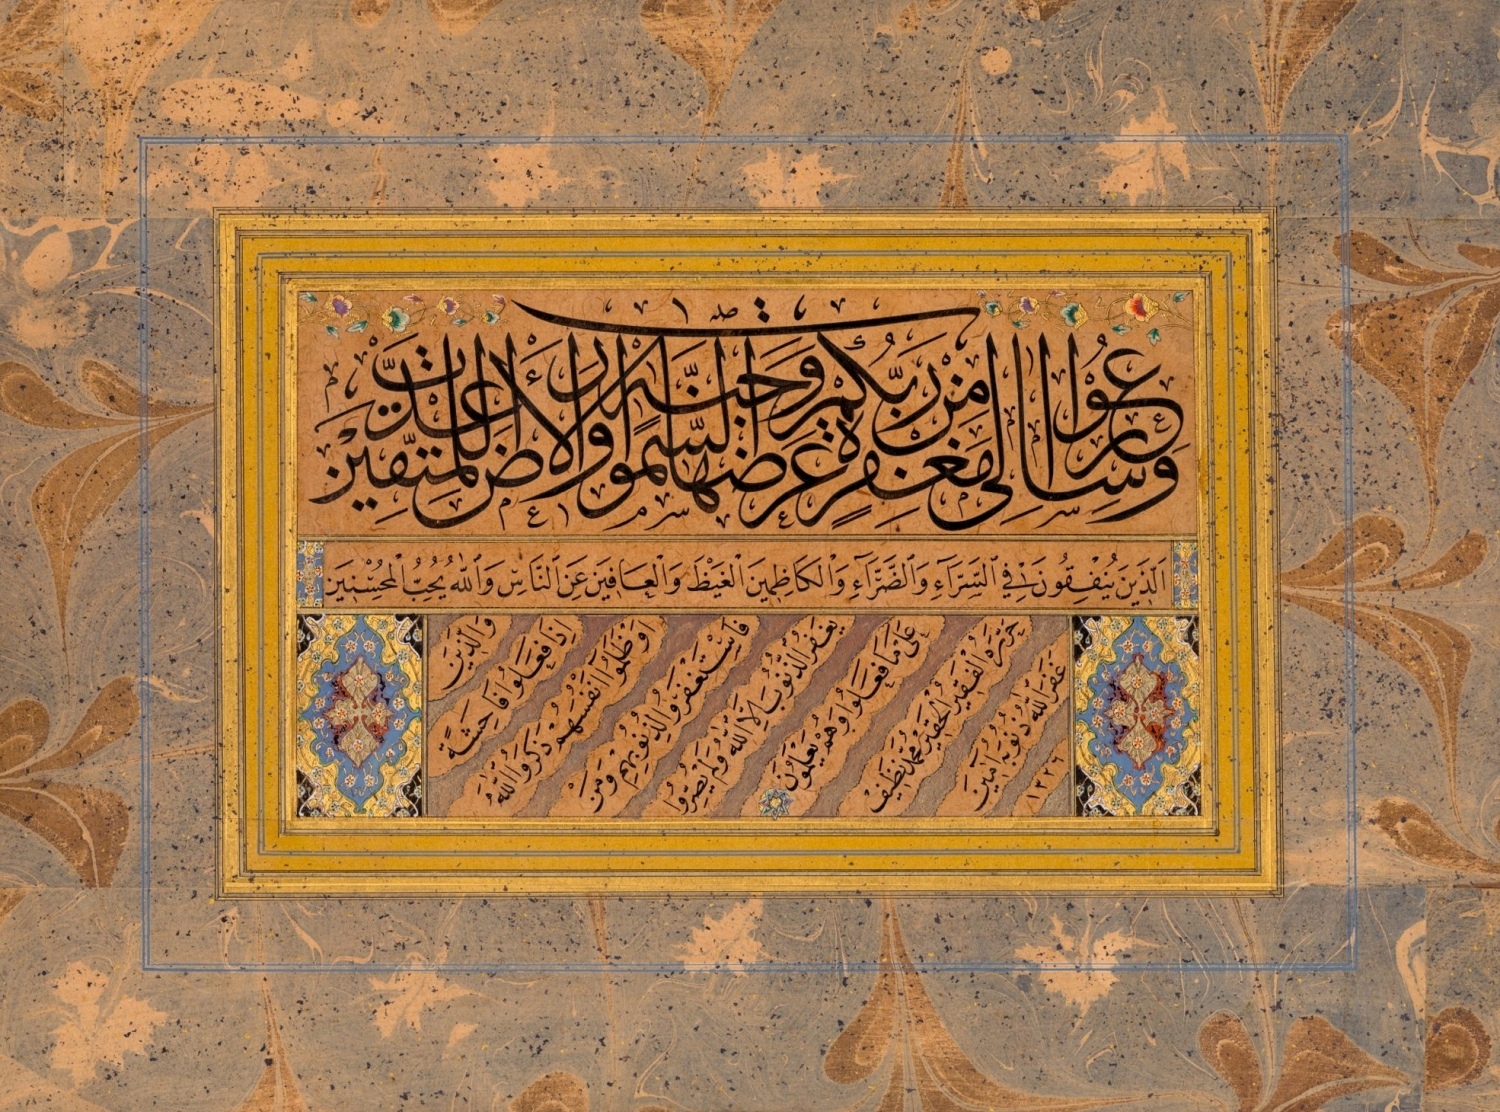 وَسَارِعُوا إِلَى مَغْفِرَةٍ مِنْ رَبِّكُمْ وَجَنَّةٍ عَرْضُهَا السَّمٰوَاتُ وَالْأَرْضُ أُعِدَّتْ لِلْمُتَّقِينَ
الَّذِينَ يُنْفِقُونَ فِي السَّرَّاءِ وَالضَّرَّاءِ وَالْكَاظِمِينَ الْغَيْظَ وَالْعَافِينَ عَنِ النَّاسِ وَاللّٰهُ يُحِبُّ الْمُحْسِنِينَ
وَالَّذِينَ
إِذَا فَعَلُوا فَاحِشَةً
أَوْ ظَلَمُوا أَنْفُسَهُمْ ذَكَرُوا اللّٰهَ
فَاسْتَغْفَرُوا لِذُنُوبِهِمْ وَمَنْ
يَغْفِرُ الذُّنُوبَ إِلَّا اللّٰهُ وَلَمْ يُصِرُّوا
عَلَى مَا فَعَلُوا وَهُمْ يَعْلَمُونَ
حَرَّرَهُ الْفَقِيرُ الْحَقِيرُ مُحَمَّد نَظِيف
غَفَرَ اللّٰهُ ذُنُوبَهُ آمِينَ
١٢٢٦